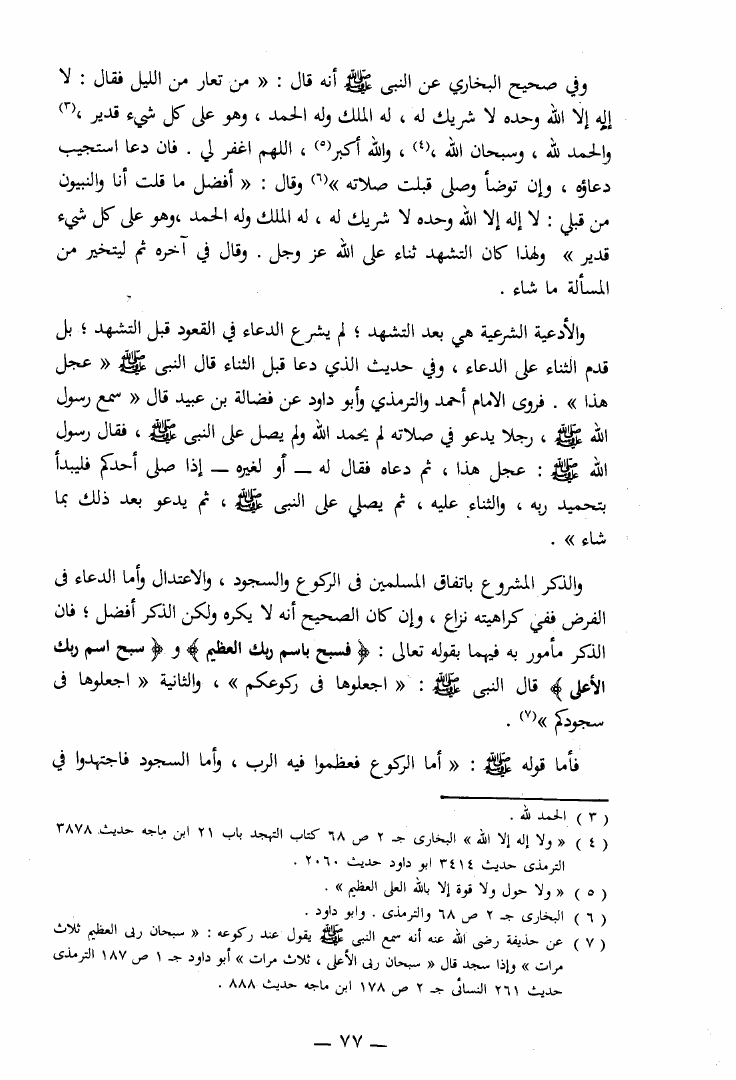 وفي صحيح البخاري عن النبى ﷺ أنه قال : « من تعار من الليل فقال : لا
إله إلا الله وحده لا شريك له ، له الملك وله الحمد ، وهو على كل شيء قدير ،(٣)
والحمد لله ، وسبحان الله ،(٤) ، والله أكبر(٥) ، اللهم اغفر لي . فان دعا استجيب
دعاؤه ، وإن توضأ وصلى قبلت صلاته »(٦) وقال : « أفضل ما قلت أنا والنبيون
من قبلي : لا إله إلا الله وحده لا شريك له ، له الملك وله الحمد ،وهو على كل شيء
قدير » ولهذا كان التشهد ثناء على الله عز وجل . وقال في آخره ثم ليتخير من
المسألة ما شاء .
والأدعية الشرعية هي بعد التشهد ؛ لم يشرع الدعاء في القعود قبل التشهد ؛ بل
قدم الثناء على الدعاء ، وفي حديث الذي دعا قبل الثناء قال النبى ﷺ « عجل
هذا » . فروى الامام أحمد والترمذي وأبو داود عن فضالة بن عبيد قال « سمع رسول
الله ﷺ ، رجلا يدعو في صلاته لم يحمد الله ولم يصل على النبى ﷺ ، فقال رسول
الله ﷺ : عجل هذا ، ثم دعاه فقال له — أو لغيره — إذا صلى أحدكم فليبدأ
بتحميد ربه ، والثناء عليه ، ثم يصلي على النبى ﷺ ، ثم يدعو بعد ذلك بما
شاء » .
والذكر المشروع باتفاق المسلمين فى الركوع والسجود ، والاعتدال وأما الدعاء فى
الفرض ففي كراهيته نزاع ، وإن كان الصحيح أنه لا يكره ولكن الذكر أفضل ؛ فان
الذكر مأمور به فيهما بقوله تعالى : ﴿ فسبح باسم ربك العظيم ﴾ و ﴿ سبح اسم ربك
الأعلى ﴾ قال النبى ﷺ : « اجعلوها فى ركوعكم » ، والثانية « اجعلوها فى
سجودكم »(٧) .
فأما قوله ﷺ : « أما الركوع فعظموا فيه الرب ، وأما السجود فاجتهدوا في
( ٣ ) الحمد لله .
( ٤ ) « ولا إله إلا الله » البخارى جـ ٢ ص ٦٨ كتاب التهجد باب ٢١ ابن ماجه حديث ٣٨٧٨
الترمذى حديث ٣٤١٤ ابو داود حديث ٢٠٦٠ .
( ٥ ) « ولا حول ولا قوة إلا بالله العلى العظيم » .
( ٦ ) البخارى جـ ٢ ص ٦٨ والترمذى . وابو داود .
( ٧ ) عن حذيفة رضى الله عنه أنه سمع النبي ﷺ يقول عند ركوعه : « سبحان ربى العظيم ثلاث
مرات » وإذا سجد قال « سبحان ربى الأعلى ، ثلاث مرات » أبو داود جـ ١ ص ١٨٧ الترمذى
حديث ٢٦١ النسائى جـ ٢ ص ١٧٨ ابن ماجه حديث ٨٨٨ .
— ٧٧ —